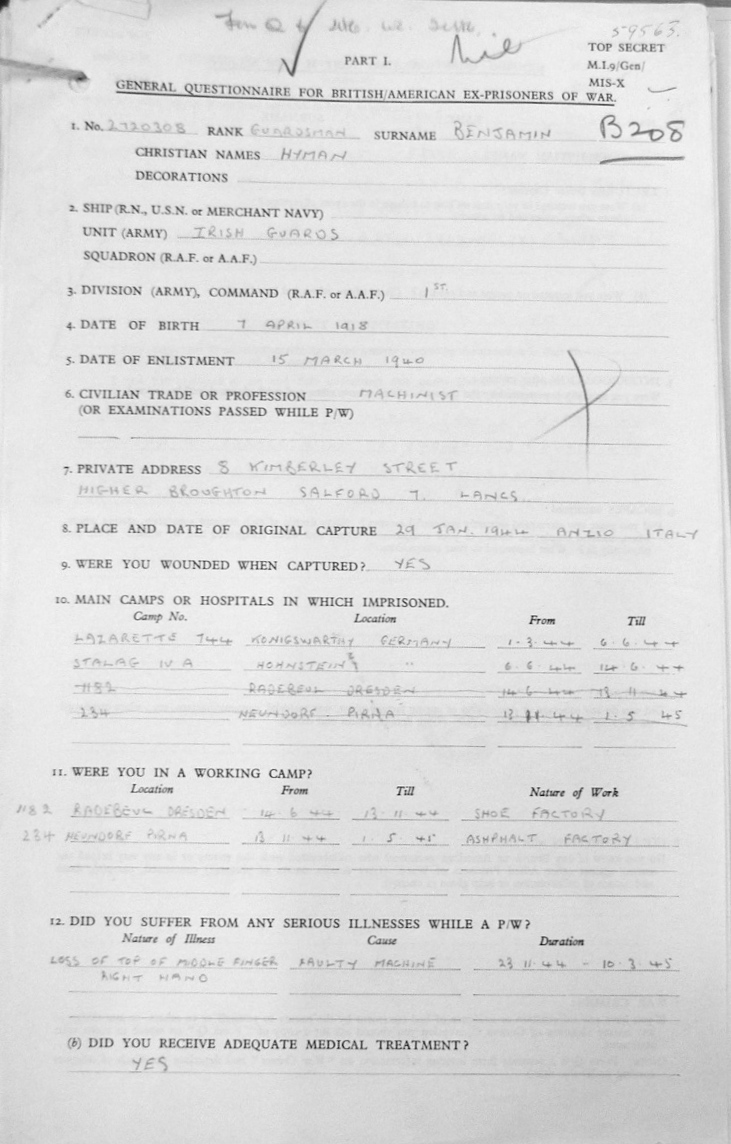 59563.
TOP SECRET
PART I.
M.I.9/Gen/
MIS-X
GENERAL QUESTIONNAIRE FOR BRITISH/AMERICAN EX-PRISONERS OF WAR.
1. No. 2720308 RANK GUARDSMAN SURNAME BENJAMIN B208
CHRISTIAN NAMES HYMAN
DECORATIONS
2. SHIP (R.N., U.S.N. or MERCHANT NAVY)
UNIT (ARMY) IRISH GUARDS
SQUADRON (R.A.F. or A.A.F.)
3. DIVISION (ARMY), COMMAND (R.A.F. or A.A.F.) 1ST.
4. DATE OF BIRTH 7 APRIL 1918
5. DATE OF ENLISTMENT 15 MARCH 1940
6. CIVILIAN TRADE OR PROFESSION MACHINIST
(OR EXAMINATIONS PASSED WHILE P/W)
7. PRIVATE ADDRESS 8 KIMBERLEY STREET
HIGHER BROUGHTON SALFORD 7. LANCS
8. PLACE AND DATE OF ORIGINAL CAPTURE 29 JAN. 1944 ANZIO ITALY
9. WERE YOU WOUNDED WHEN CAPTURED? YES
10. MAIN CAMPS OR HOSPITALS IN WHICH IMPRISONED.
Camp No. Location From Till
LAZARETTE 744 KONIGSWARTHY GERMANY 1-3-44 6.6.44
STALAG IV A HOHNSTEIN " 6.6.44 14.6.44
1182 RADEBEUL DRESDEN 14.6.44 13.11.44
234 NEUNDORF PIRNA 13.11.44 1.5.45
11. WERE YOU IN A WORKING CAMP?
Location From Till Nature of Work
1182 RADEBEUL DRESDEN 14.6.44 13.11.44 SHOE FACTORY
234 NEUNDORF PIRNA 13.11.44 1.5.45 ASHPHALT FACTORY
12. DID YOU SUFFER FROM ANY SERIOUS ILLNESSES WHILE A P/W?
Nature of Illness Cause Duration
LOSS OF TOP OF MIDDLE FINGER FAULTY MACHINE 23.11.44 - 10.3.45
RIGHT HAND
(b) DID YOU RECEIVE ADEQUATE MEDICAL TREATMENT?
YES